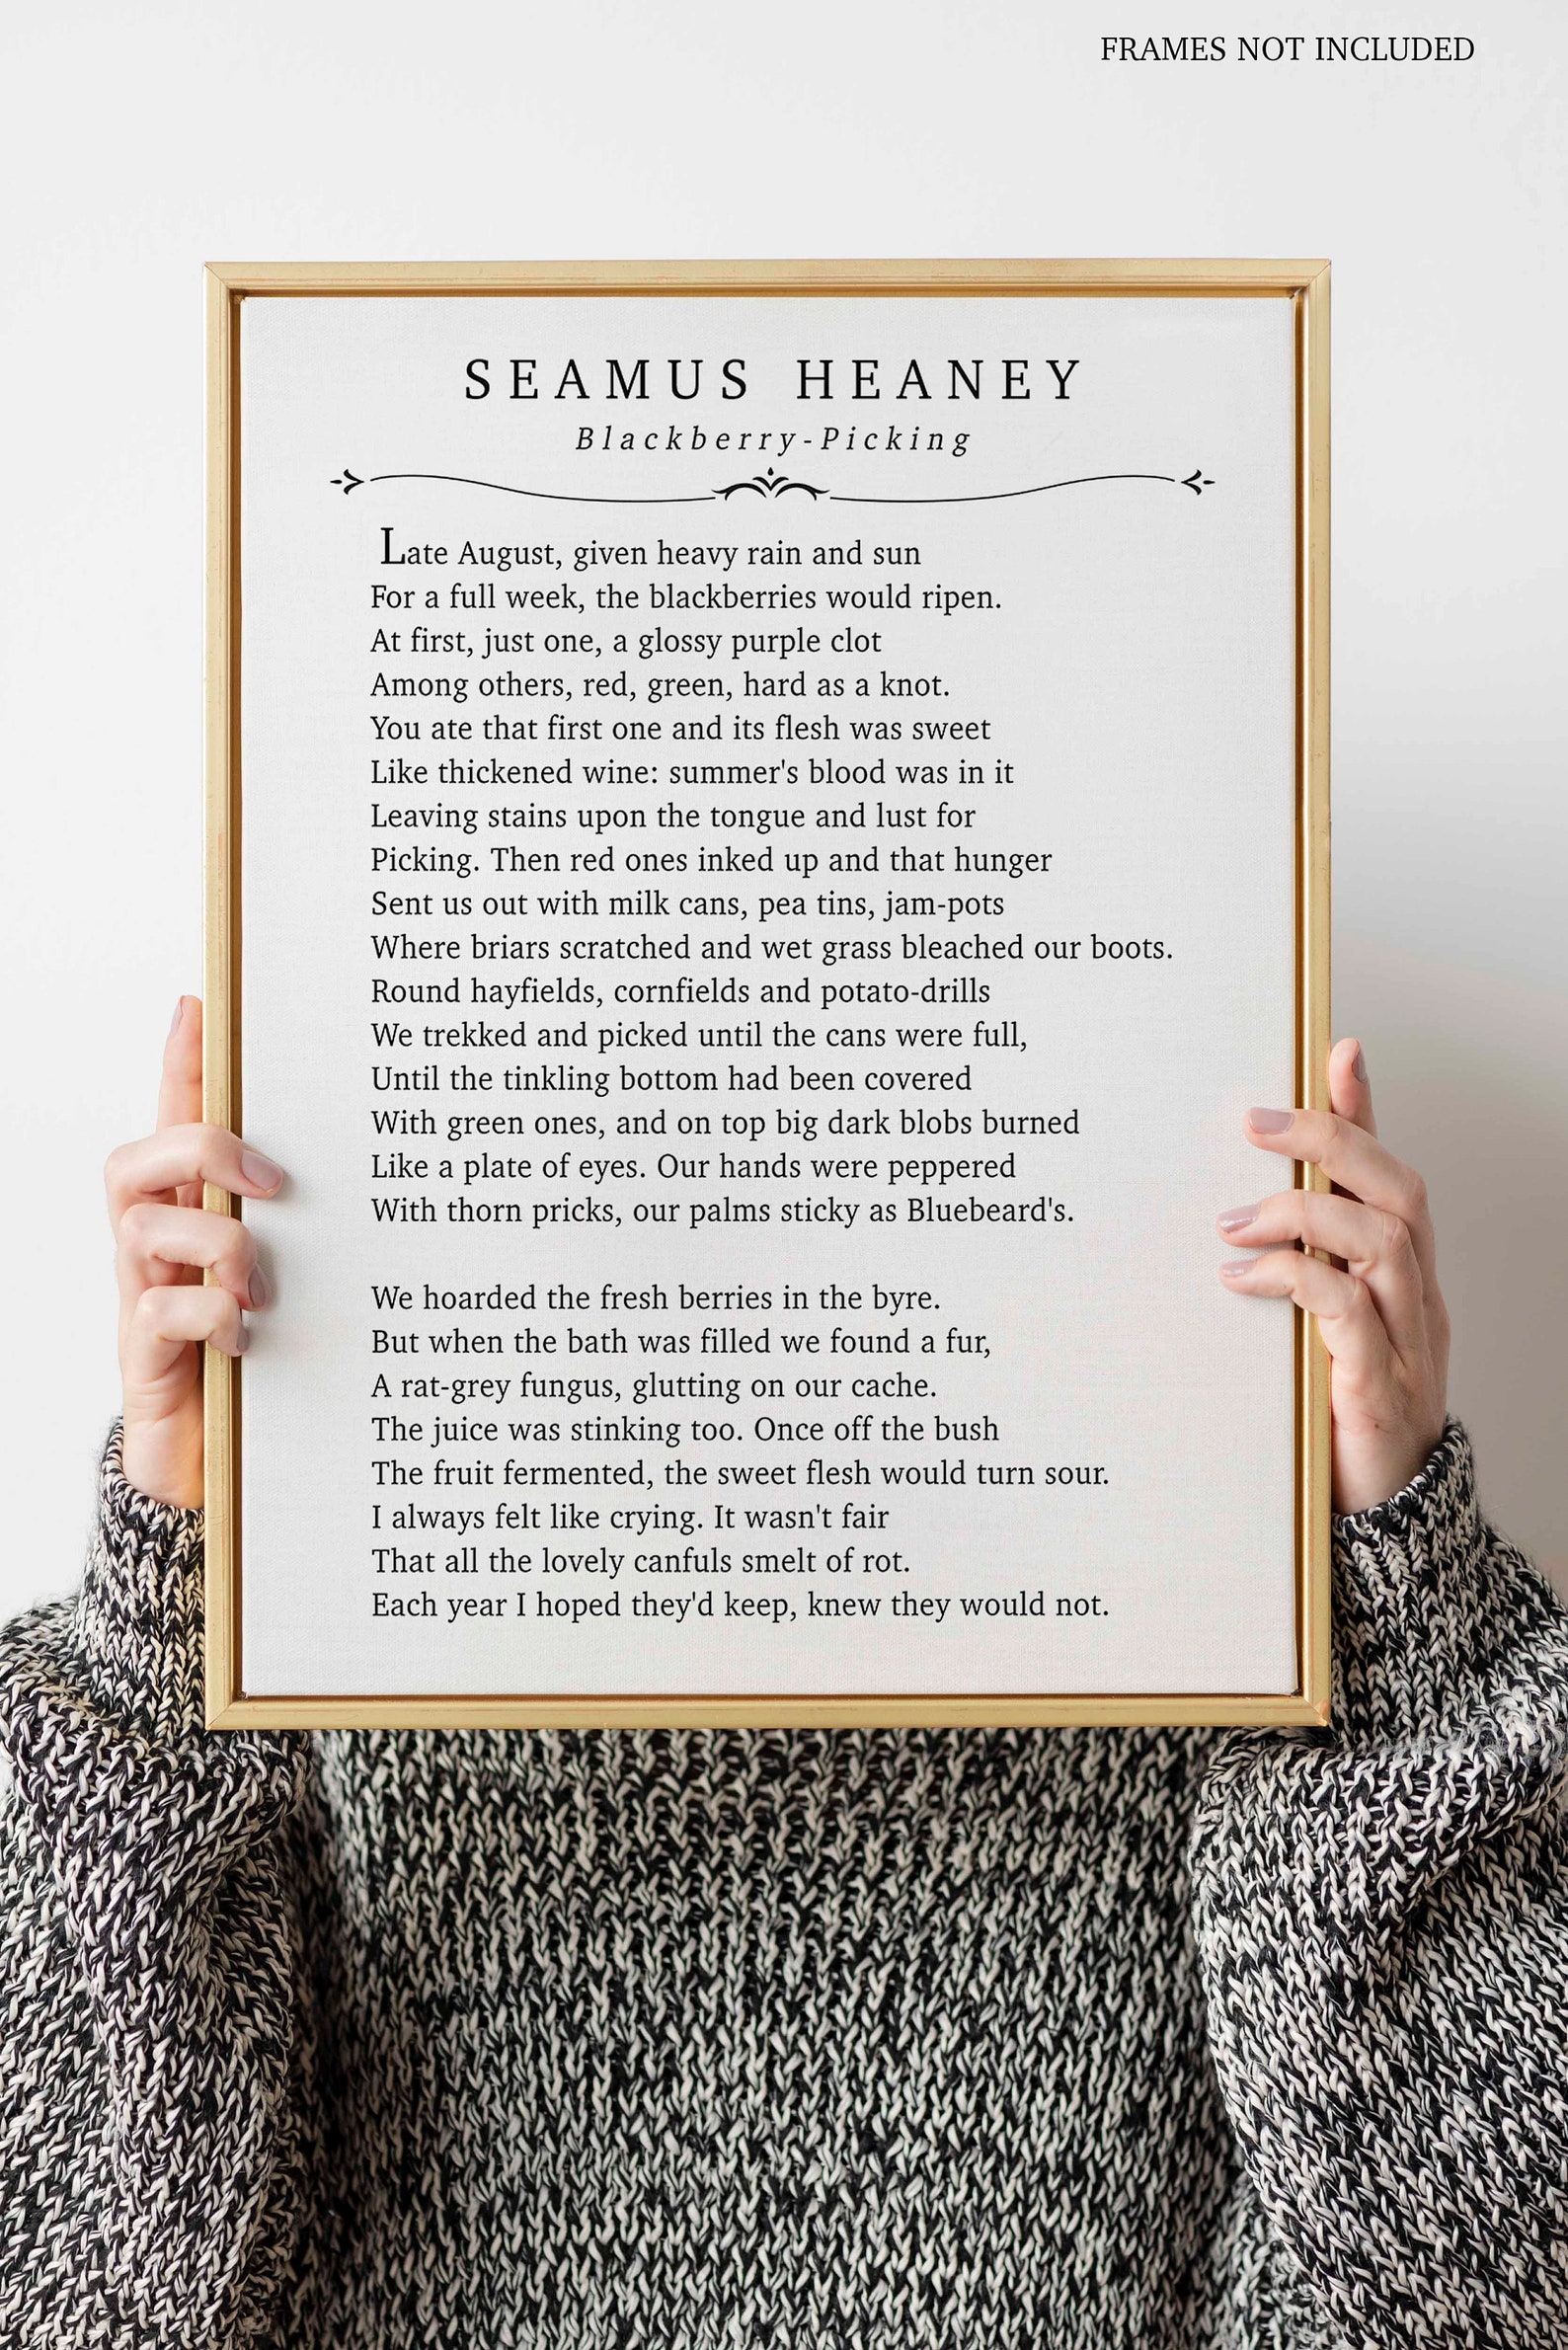 FRAMES NOT INCLUDED
SEAMUS HEANEY
Blackberry-Picking
Late August, given heavy rain and sun
For a full week, the blackberries would ripen.
At first, just one, a glossy purple clot
Among others, red, green, hard as a knot.
You ate that first one and its flesh was sweet
Like thickened wine: summer's blood was in it
Leaving stains upon the tongue and lust for
Picking. Then red ones inked up and that hunger
Sent us out with milk cans, pea tins, jam-pots
Where briars scratched and wet grass bleached our boots.
Round hayfields, cornfields and potato-drills
We trekked and picked until the cans were full,
Until the tinkling bottom had been covered
With green ones, and on top big dark blobs burned
Like a plate of eyes. Our hands were peppered
With thorn pricks, our palms sticky as Bluebeard's.
We hoarded the fresh berries in the byre.
But when the bath was filled we found a fur,
A rat-grey fungus, glutting on our cache.
The juice was stinking too. Once off the bush
The fruit fermented, the sweet flesh would turn sour.
I always felt like crying. It wasn't fair
That all the lovely canfuls smelt of rot.
Each year I hoped they'd keep, knew they would not.